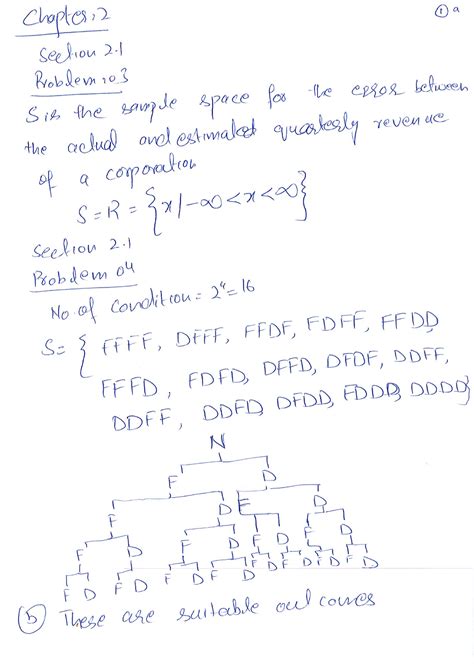 Chapter: 2
① a
Section 2.1
Problem: 03
S is the sample space for the error between
the actual and estimated quarterly revenue
of a corporation
S = R = {x/-∞<x<∞}
Section 2.1
Problem 04
No of Condition = 2⁴ = 16
S = { FFFF, DFFF, FFDF, FDFF, FFDD,
FFFD, FDFD, DFFD, DFDF, DDFF,
DDFF, DDFD, DFDD, FDDD, DDDD}
N
F D
F D F D
F D F D F D F D
F D F D F D F D F D F D F D F D
(b) These are suitable outcomes